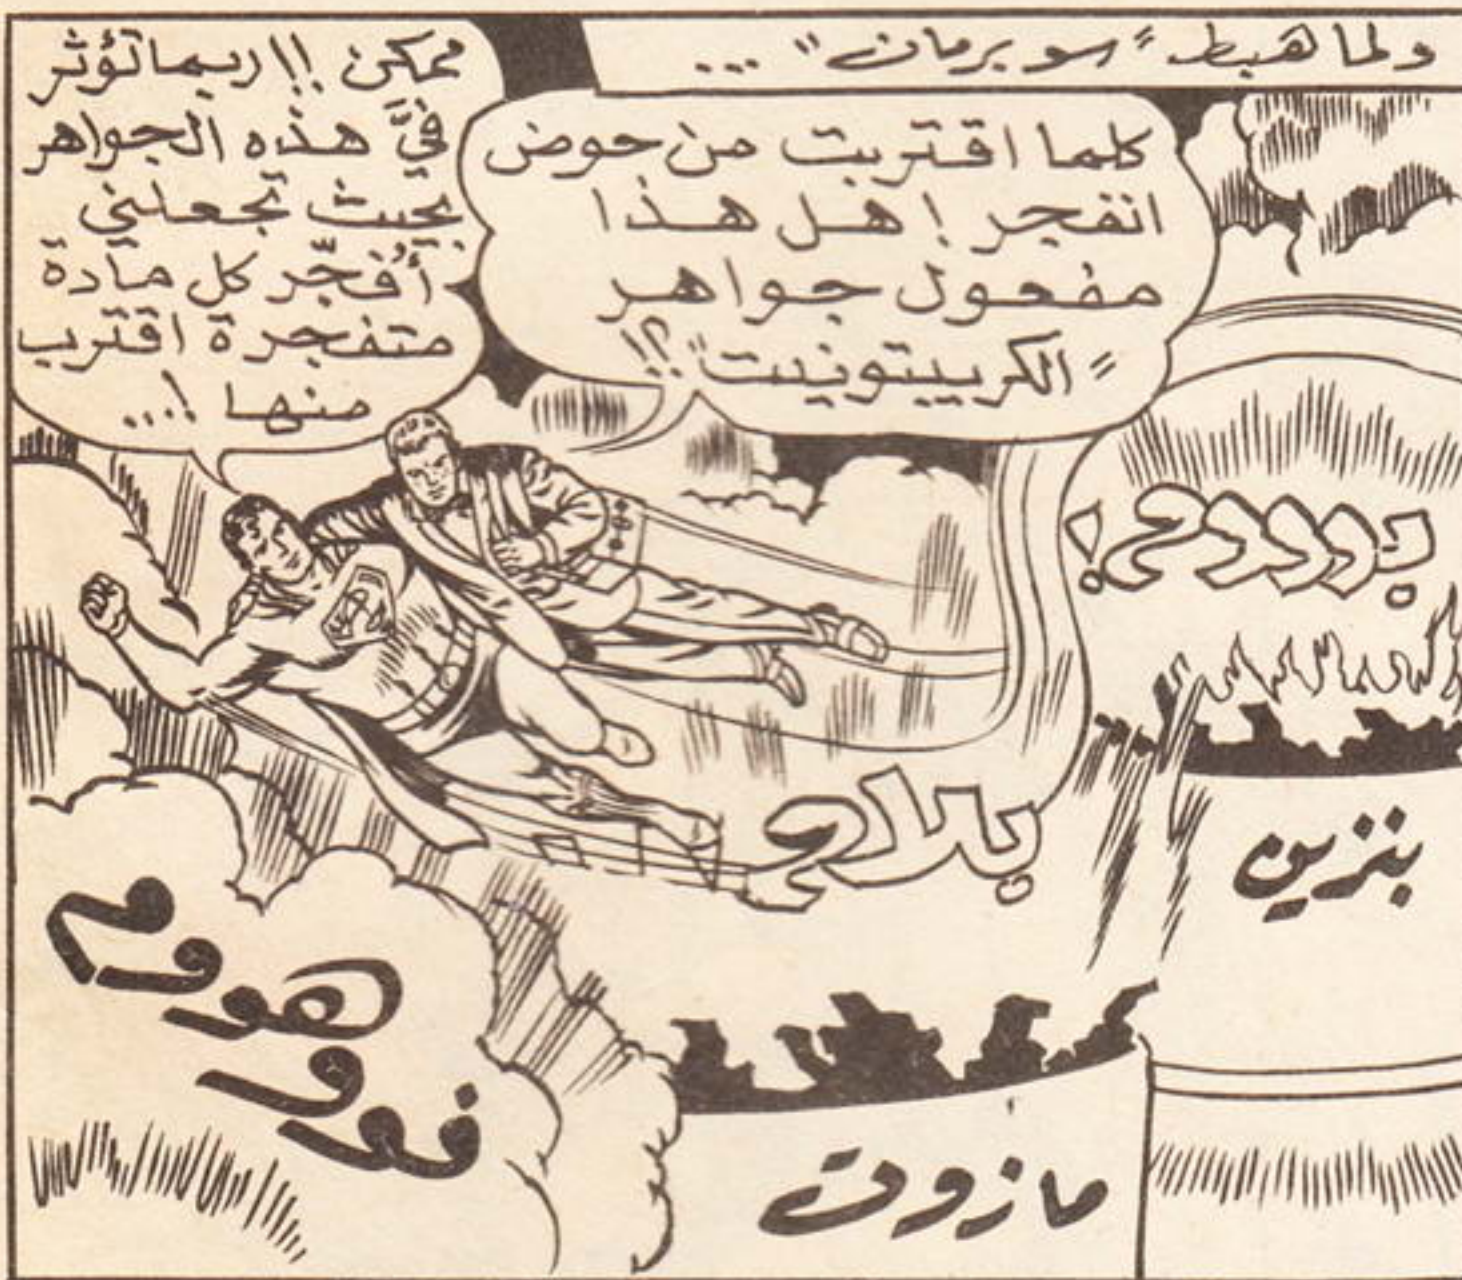 ولما هبط "سوبرمان" ...
كلما اقتربت من حوض
انفجر! هل هذا
مفعول جواهر
"الكريبتونيت"؟!!
ممكن!! ربما تؤثر
فيَّ هذه الجواهر
بحيث تجعلني
أُفجّر كل مادة
متفجرة اقترب
منها!...
بوووم!
بلام
بنزين
فوو
هووم
مازوت